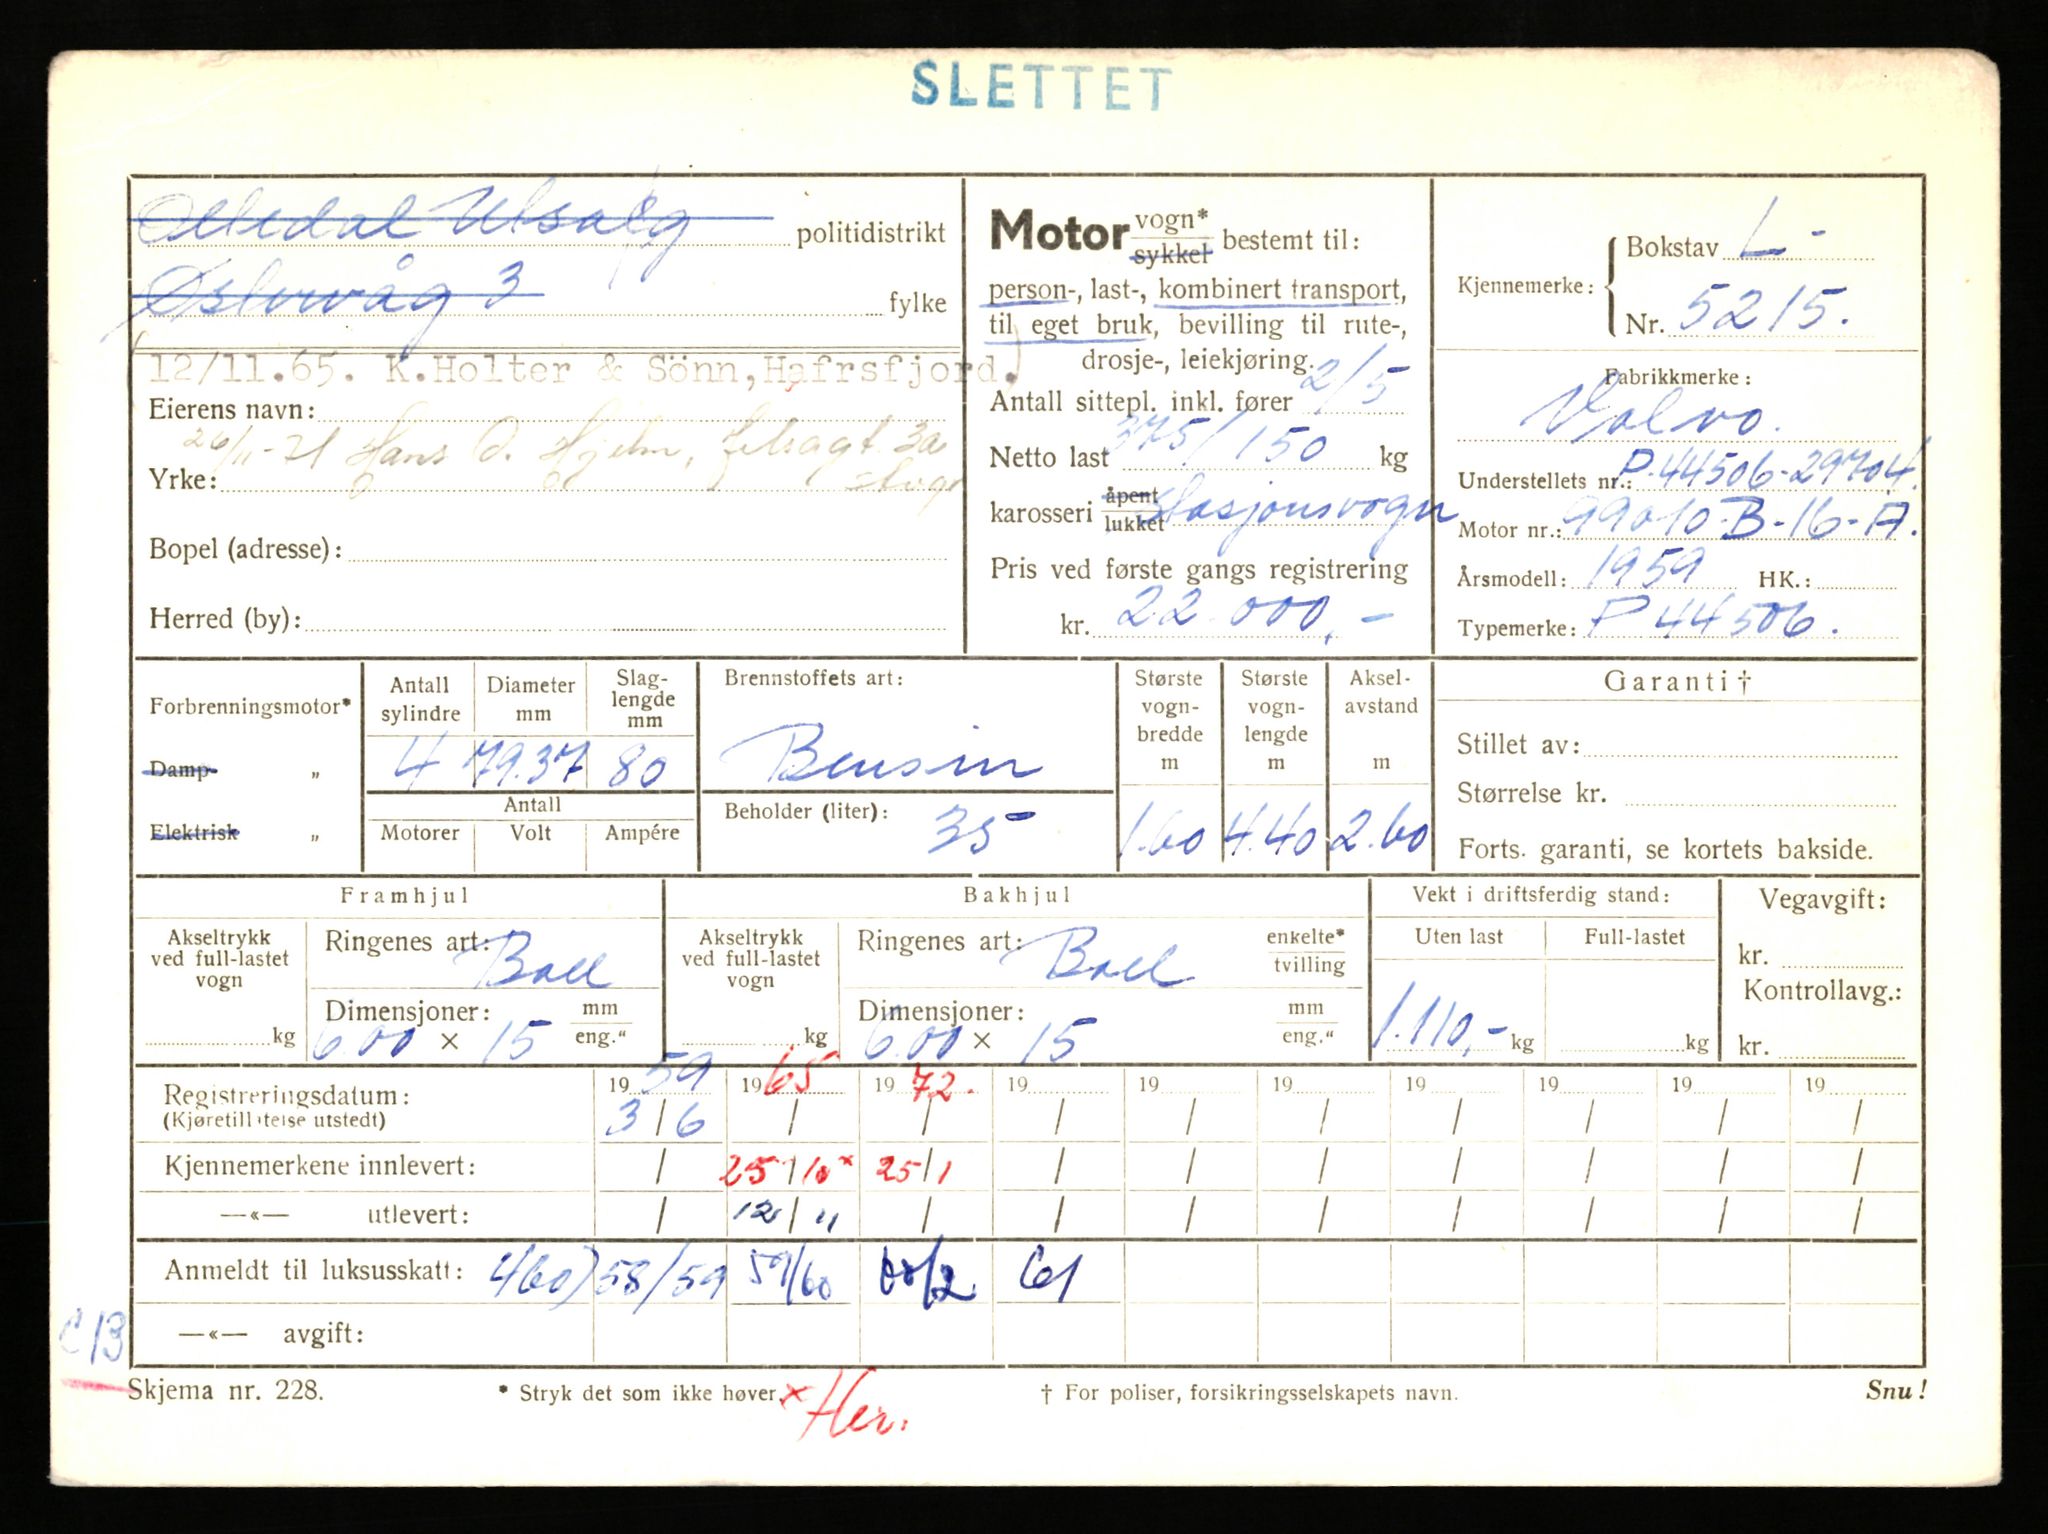 SLETTET
politidistrikt
3
fylke
12/11.65. K.Holter & Sönn, Hafrsfjord.)
Eierens navn:
26/11-71 Hans O. Hjelm,
Yrke:
Bopel (adresse):
Herred (by):
Motor vogn* sykkel bestemt til:
person-, last-, kombinert transport,
til eget bruk, bevilling til rute-,
drosje-, leiekjøring.
Antall sittepl. inkl. fører 2/5
Netto last 375/150 kg
karosseri åpent lukket Stasjonsvogn
Pris ved første gangs registrering
kr. 22.000,-
Kjennemerke: Bokstav L-
Nr. 5215.
Fabrikkmerke:
Volvo.
Understellets nr.: P.44506-29704.
Motor nr.: 99010-B-16-A.
Årsmodell: 1959 HK.:
Typemerke: P 44506.
Forbrenningsmotor*
Damp- „
Elektrisk „
Antall sylindre
Diameter mm
Slag-lengde mm
4 79.37 80
Antall
Motorer Volt Ampére
Brennstoffets art:
Bensin
Beholder (liter): 35
Største vogn-bredde m
1.60
Største vogn-lengde m
4.40
Aksel-avstand m
2.60
Garanti †
Stillet av:
Størrelse kr.
Forts. garanti, se kortets bakside.
Framhjul
Akseltrykk ved full-lastet vogn
kg
Ringenes art: Ball
Dimensjoner: mm eng.“
6.00 × 15
Bakhjul
Akseltrykk ved full-lastet vogn
kg
Ringenes art: Ball enkelte* tvilling
Dimensjoner: mm eng.“
6.00 × 15
Vekt i driftsferdig stand:
Uten last Full-lastet
1.110,- kg kg
Vegavgift:
kr.
Kontrollavg.:
kr.
Registreringsdatum: 19 59 19 65 19 72. 19 19 19 19 19 19 19
(Kjøretillatelse utstedt) 3/6 / / / / / / / / /
Kjennemerkene innlevert: / 25/10* 25/1 / / / / / / /
—«— utlevert: / 12/11 / / / / / / / /
Anmeldt til luksusskatt: 4(60) 58/59 59/60 60/2 61
—«— avgift:
C/3
Skjema nr. 228.
* Stryk det som ikke høver.
× Her.
† For poliser, forsikringsselskapets navn.
Snu!